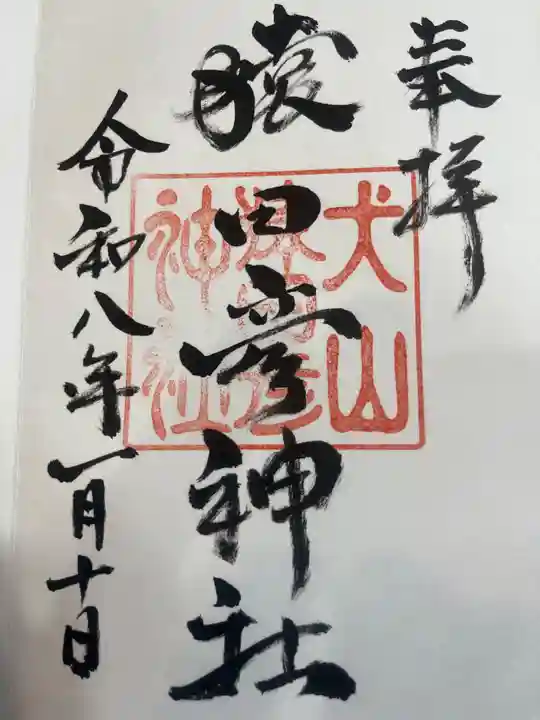 奉拝
猿田彦神社
犬山
神社
令和八年一月十日